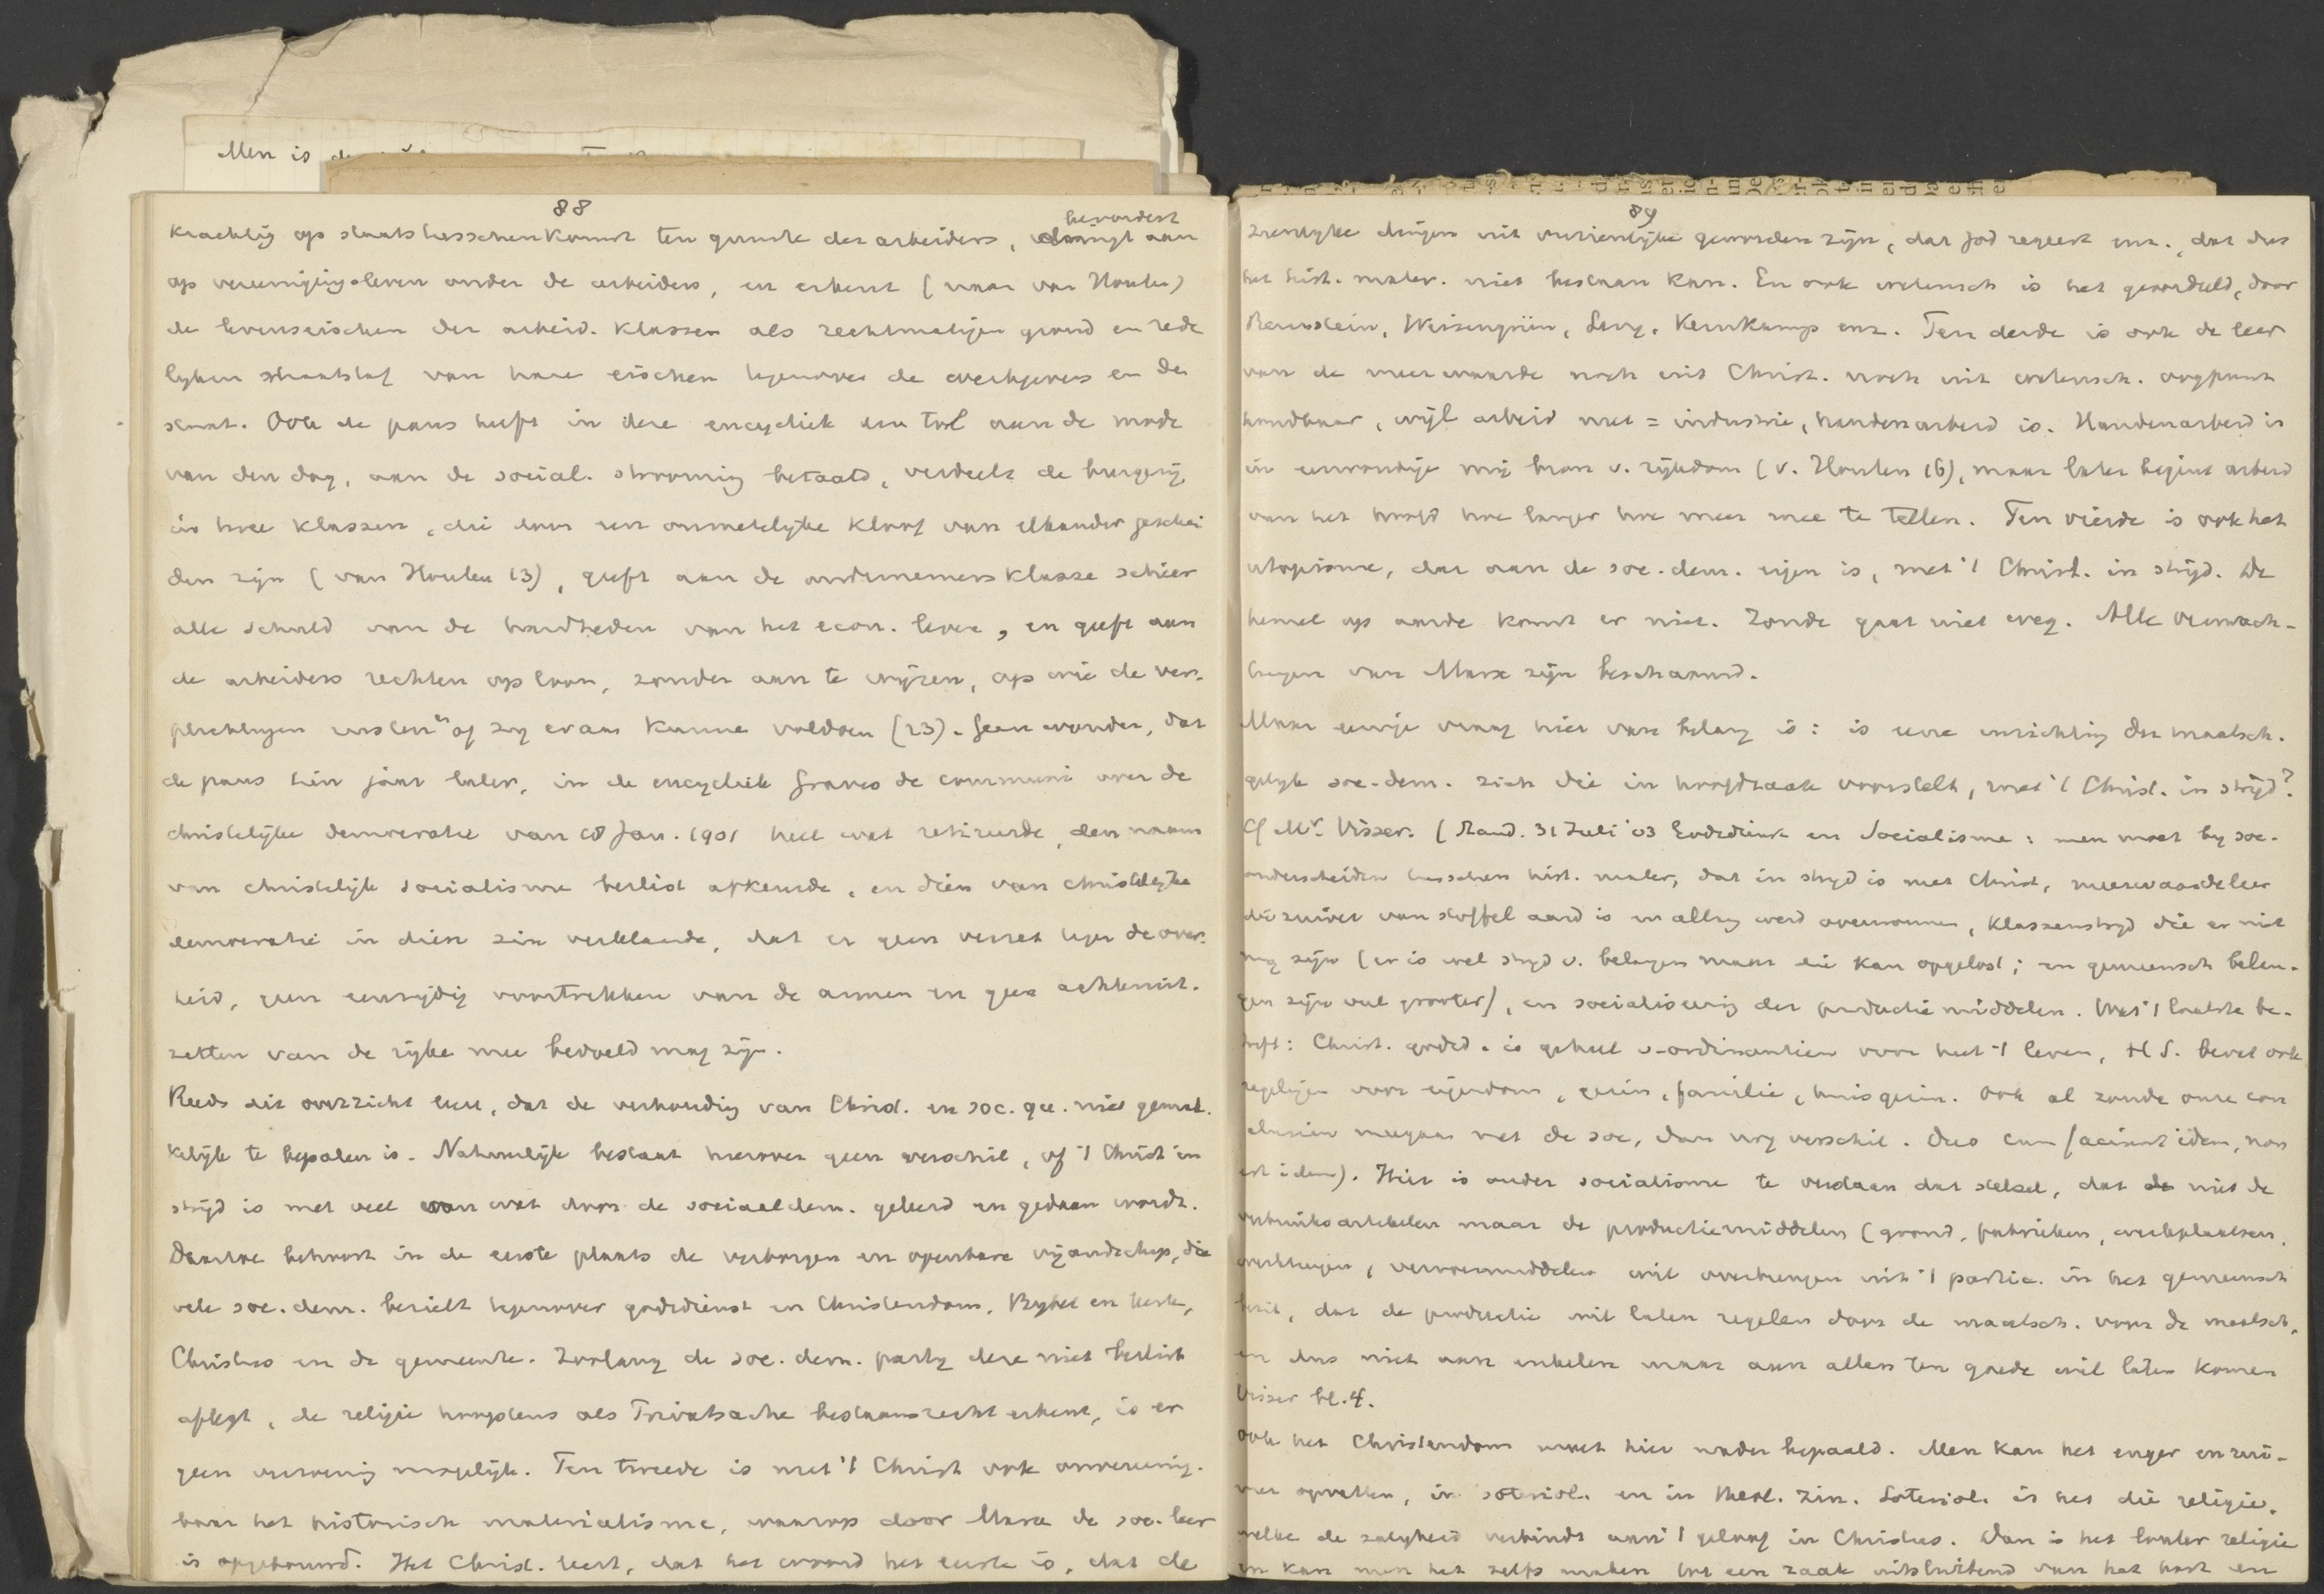 Men is
88
bevordert
krachtig op staatstusschenkomst ten gunste der arbeiders, dringt aan
op vereenigingsleven onder de arbeiders, en erkent (naar van Houten)
de levenseischen der arbeid. klassen als rechtmatigen grond en rede
lyken maatstaf van hare eischen tegenover de werkgevers en den
staat. Ook de paus heeft in deze encycliek een tol aan de mode
van den dag, aan de social. strooming betaald, verdeelt de burgerij
in twee klassen, die door een onmetelyke kloof van elkander geschei
den zijn (van Houten 13), geeft aan de ondernemersklasse schier
alle schuld van de hardheden van het econ. leven, en geeft aan
de arbeiders rechten op loon, zonder aan te wijzen, op wie de ver-
plichtingen rusten en of zy eraan kunne voldoen (23). Geen wonder, dat
de paus tien jaar later, in de encycliek Graves de communi over de
christelijke democratie van 18 Jan. 1901 heel wat retireerde, den naam
van christelijk socialisme beslist afkeurde, en dien van christelyke
democratie in dien zin verklaarde, dat er geen verzet tegen de over-
heid, geen eenzijdig voortrekken van de armen en geen achteruit-
zetten van de rijke mee bedoeld mag zijn.
Reeds dit overzicht leert, dat de verhouding van Christ. en soc. niet gemak-
kelijk te bepalen is. Natuurlijk bestaat hierover geen verschil, of 't Christ in
strijd is met veel van wat door de sociaaldem. geleerd en gedaan wordt.
Daartoe behoort in de eerste plaats de verborgen en openbare vijandschap, die
vele soc. dem. bezielt tegenover godsdienst en Christendom, Bybel en kerk,
Christus en de gemeente. Zoolang de soc. dem. party deze niet beslist
aflegt, de religie hoogstens als Privatsache bestaansrecht erkent, is er
geen verzoening mogelijk. Ten tweede is met 't Christ ook onvereenig-
baar het historisch materialisme, waarop door Marx de soc. leer
is opgebouwd. Het Christ. leert, dat het woord het eerste is, dat de
89
zienlyke dingen uit onzienlijke geworden zijn, dat God regeert enz., dat dus
het hist. mater. niet bestaan kan. En ook wetensch is het geoordeeld, door
Bernstein, Weisengrün, Kernkamp enz. Ten derde is ook de leer
van de meerwaarde noch uit Christ. noch uit wetensch. oogpunt
houdbaar, wijl arbeid niet = industrie, handenarbeid is. Handenarbeid is
in eenvoudige mij bron v. rijkdom (v. Houten 16), maar later begint arbeid
van het hoofd hoe langer hoe meer mee te tellen. Ten vierde is ook het
utopisme, dat aan de soc. dem. eigen is, met 't Christ. in strijd. De
hemel op aarde komt er niet. Zonde gaat niet weg. Alle verwach-
tingen van Marx zijn beschaamd.
Maar eenige vraag hier van belang is: is eene inrichting der maatsch.
gelijk soc-dem. zich die in hoofdzaak voorstelt, met 't Christ. in strijd?
Cf Mr. Visser. (Stand. 31 Juli '03 Godsdienst en Socialisme: men moet by soc-
onderscheiden tusschen hist. mater, dat in strijd is met Christ, meerwaardeleer
die zuiver van stoffel aard is en allang werd overwonnen, klassenstryd die er niet
mag zijn (er is wel stryd v. belangen maar die kan opgelost; en gemeensch belan-
gen zijn veel grooter), en socialiseering der productiemiddelen. Wat 't laatste be-
treft: Christ. godsd. is geheel v. ordinantiën voor heel 't leven, H S. bevat ook
regelingen voor eigendom, gezin, familie, huisgezin. Ook al zoude onze con
clusien meegaan met de soc, dan nog verschil. Duo cum faciunt idem, non
est idem). Hier is onder socialisme te verstaan dat stelsel, dat niet de
verbruiksartikelen maar de productiemiddelen (grond, fabrieken, werkplaatsen,
werktuigen, vervoermiddelen wil overbrengen uit 't partic. in het gemeensch
bezit, dat de productie wil laten regelen door de maatsch. voor de maatsch,
en dus niet aan enkelen maar aan allen ten goede wil laten komen
Visser bl. 4.
Ook het Christendom moet hier nader bepaald. Men kan het enger en rui-
mer opvatten, in soteriol. en in theol. zin. Soteriol. is het die religie,
welke de zaligheid verbindt aan 't geloof in Christus. Dan is het louter religie
en kan men het zelfs maken tot een zaak uitsluitend van het hart en